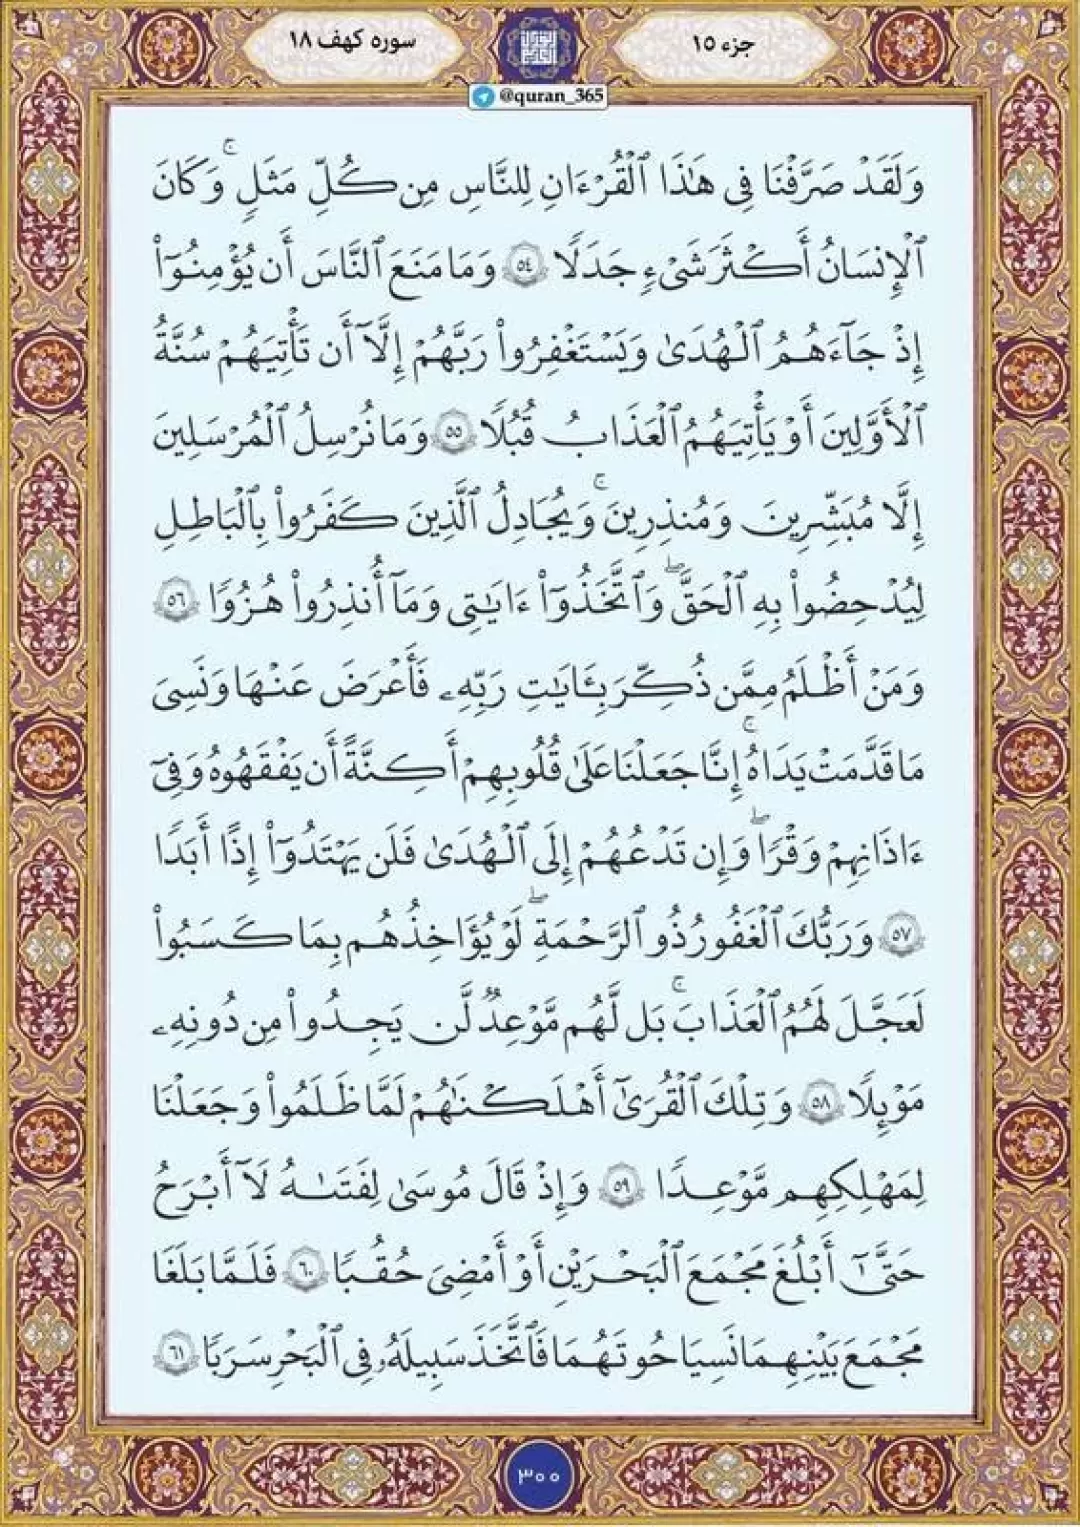 جزء ١٥
سوره کهف ١٨
@quran_365
وَلَقَدْ صَرَّفْنَا فِى هَٰذَا ٱلْقُرْءَانِ لِلنَّاسِ مِن كُلِّ مَثَلٍ ۚ وَكَانَ
ٱلْإِنسَانُ أَكْثَرَ شَىْءٍ جَدَلًا ٥٤ وَمَا مَنَعَ ٱلنَّاسَ أَن يُؤْمِنُوٓا۟
إِذْ جَآءَهُمُ ٱلْهُدَىٰ وَيَسْتَغْفِرُوا۟ رَبَّهُمْ إِلَّآ أَن تَأْتِيَهُمْ سُنَّةُ
ٱلْأَوَّلِينَ أَوْ يَأْتِيَهُمُ ٱلْعَذَابُ قُبُلًا ٥٥ وَمَا نُرْسِلُ ٱلْمُرْسَلِينَ
إِلَّا مُبَشِّرِينَ وَمُنذِرِينَ ۚ وَيُجَادِلُ ٱلَّذِينَ كَفَرُوا۟ بِٱلْبَاطِلِ
لِيُدْحِضُوا۟ بِهِ ٱلْحَقَّ ۖ وَٱتَّخَذُوٓا۟ ءَايَاتِى وَمَآ أُنذِرُوا۟ هُزُوًا ٥٦
وَمَنْ أَظْلَمُ مِمَّن ذُكِّرَ بِـَٔايَاتِ رَبِّهِۦ فَأَعْرَضَ عَنْهَا وَنَسِىَ
مَا قَدَّمَتْ يَدَاهُ ۚ إِنَّا جَعَلْنَا عَلَىٰ قُلُوبِهِمْ أَكِنَّةً أَن يَفْقَهُوهُ وَفِىٓ
ءَاذَانِهِمْ وَقْرًا ۖ وَإِن تَدْعُهُمْ إِلَى ٱلْهُدَىٰ فَلَن يَهْتَدُوٓا۟ إِذًا أَبَدًا
٥٧ وَرَبُّكَ ٱلْغَفُورُ ذُو ٱلرَّحْمَةِ ۖ لَوْ يُؤَاخِذُهُم بِمَا كَسَبُوا۟
لَعَجَّلَ لَهُمُ ٱلْعَذَابَ ۚ بَل لَّهُم مَّوْعِدٌ لَّن يَجِدُوا۟ مِن دُونِهِۦ
مَوْئِلًا ٥٨ وَتِلْكَ ٱلْقُرَىٰٓ أَهْلَكْنَٰهُمْ لَمَّا ظَلَمُوا۟ وَجَعَلْنَا
لِمَهْلِكِهِم مَّوْعِدًا ٥٩ وَإِذْ قَالَ مُوسَىٰ لِفَتَىٰهُ لَآ أَبْرَحُ
حَتَّىٰٓ أَبْلُغَ مَجْمَعَ ٱلْبَحْرَيْنِ أَوْ أَمْضِىَ حُقُبًا ٦٠ فَلَمَّا بَلَغَا
مَجْمَعَ بَيْنِهِمَا نَسِيَا حُوتَهُمَا فَٱتَّخَذَ سَبِيلَهُۥ فِى ٱلْبَحْرِ سَرَبًا ٦١
٣٠٠